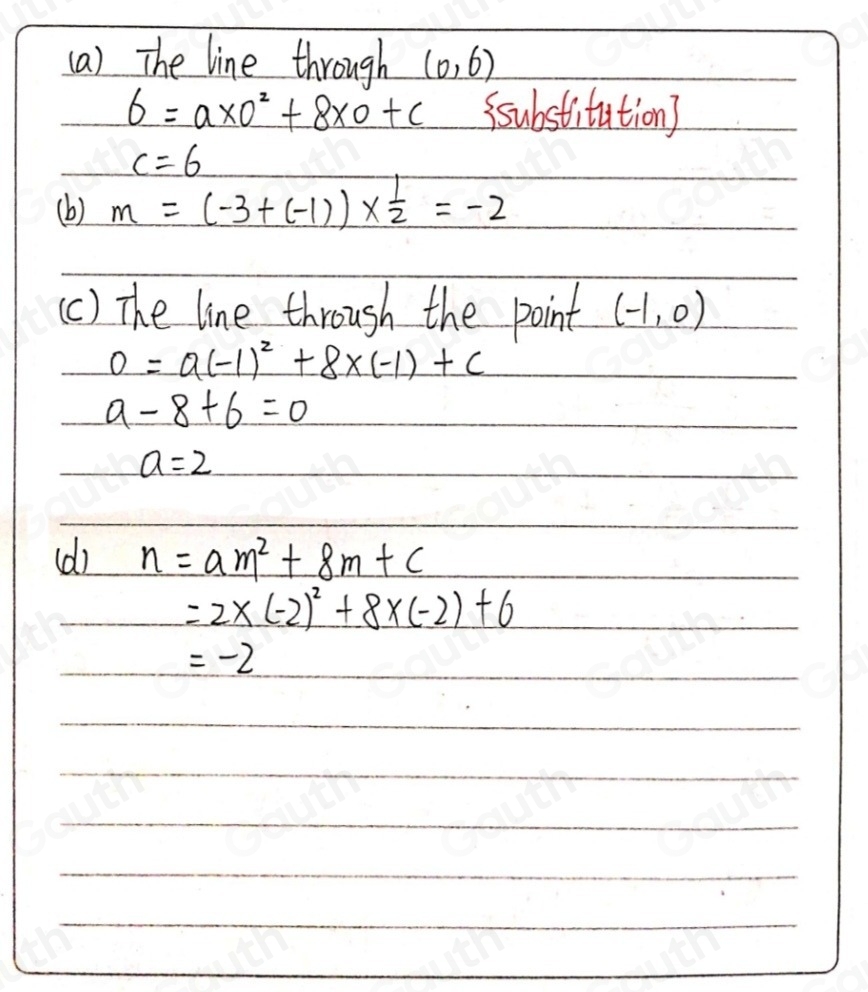 (a) The line through (0,6)
6 = a×0² + 8×0 + c {substitution}
c = 6
(b) m = (-3+(-1)) × 1/2 = -2
(c) The line through the point (-1,0)
0 = a(-1)² + 8×(-1) + c
a - 8 + 6 = 0
a = 2
(d) n = am² + 8m + c
= 2×(-2)² + 8×(-2) + 6
= -2